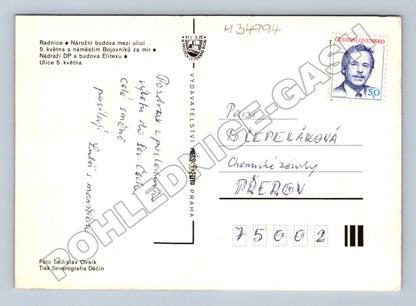 Radnice • Nárožní budova mezi ulicí
5. května a náměstím Bojovníků za mír •
Nádraží DP a budova Elitexu •
Ulice 5. května
Pozdrav z posledního
výletu do Sev. Čech
celé směně
posílají Luboš s manželkou
Foto Ladislav Ovsík
Tisk Severografia Děčín
VYDAVATELSTVÍ PRAHA
434994
ČESKOSLOVENSKO
50
Paní
ČEPELÁKOVÁ
Chemické závody
PŘEROV
75002
POHLEDNICE-GASH